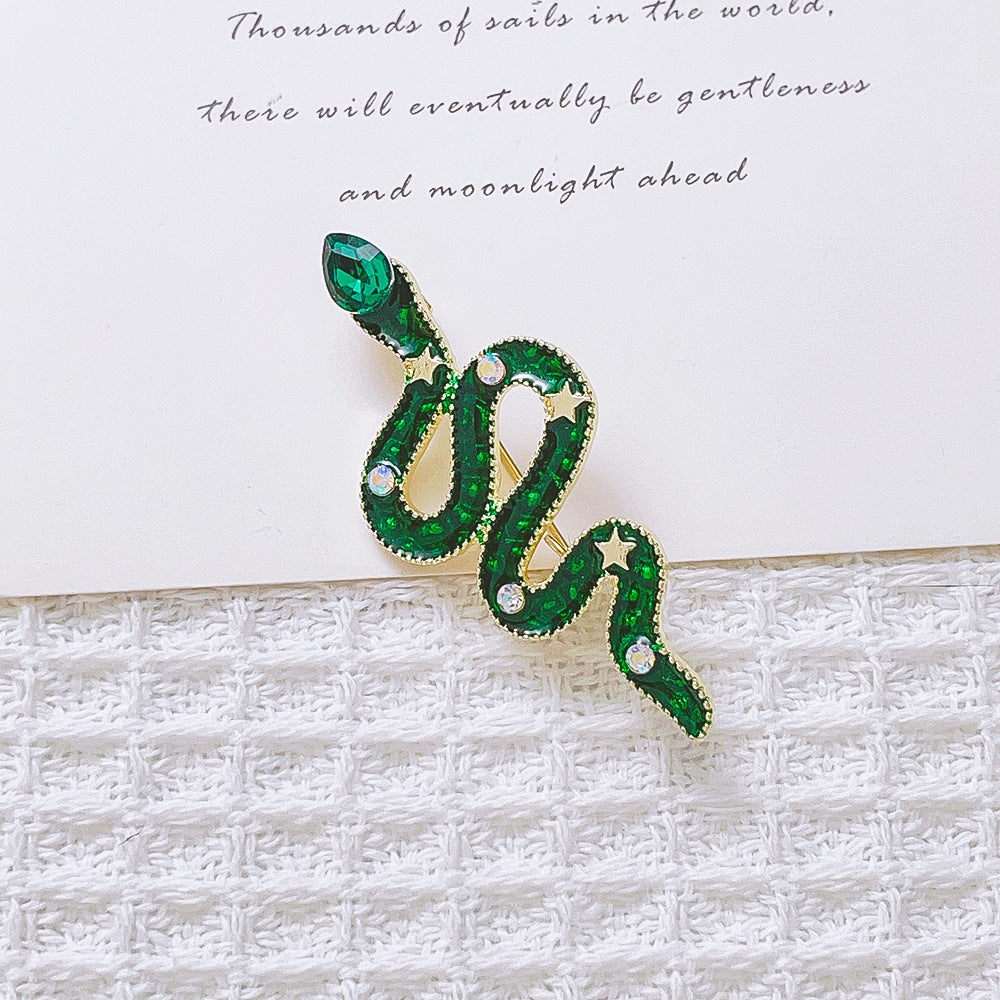 Thousands of sails in the world,
there will eventually be gentleness
and moonlight ahead